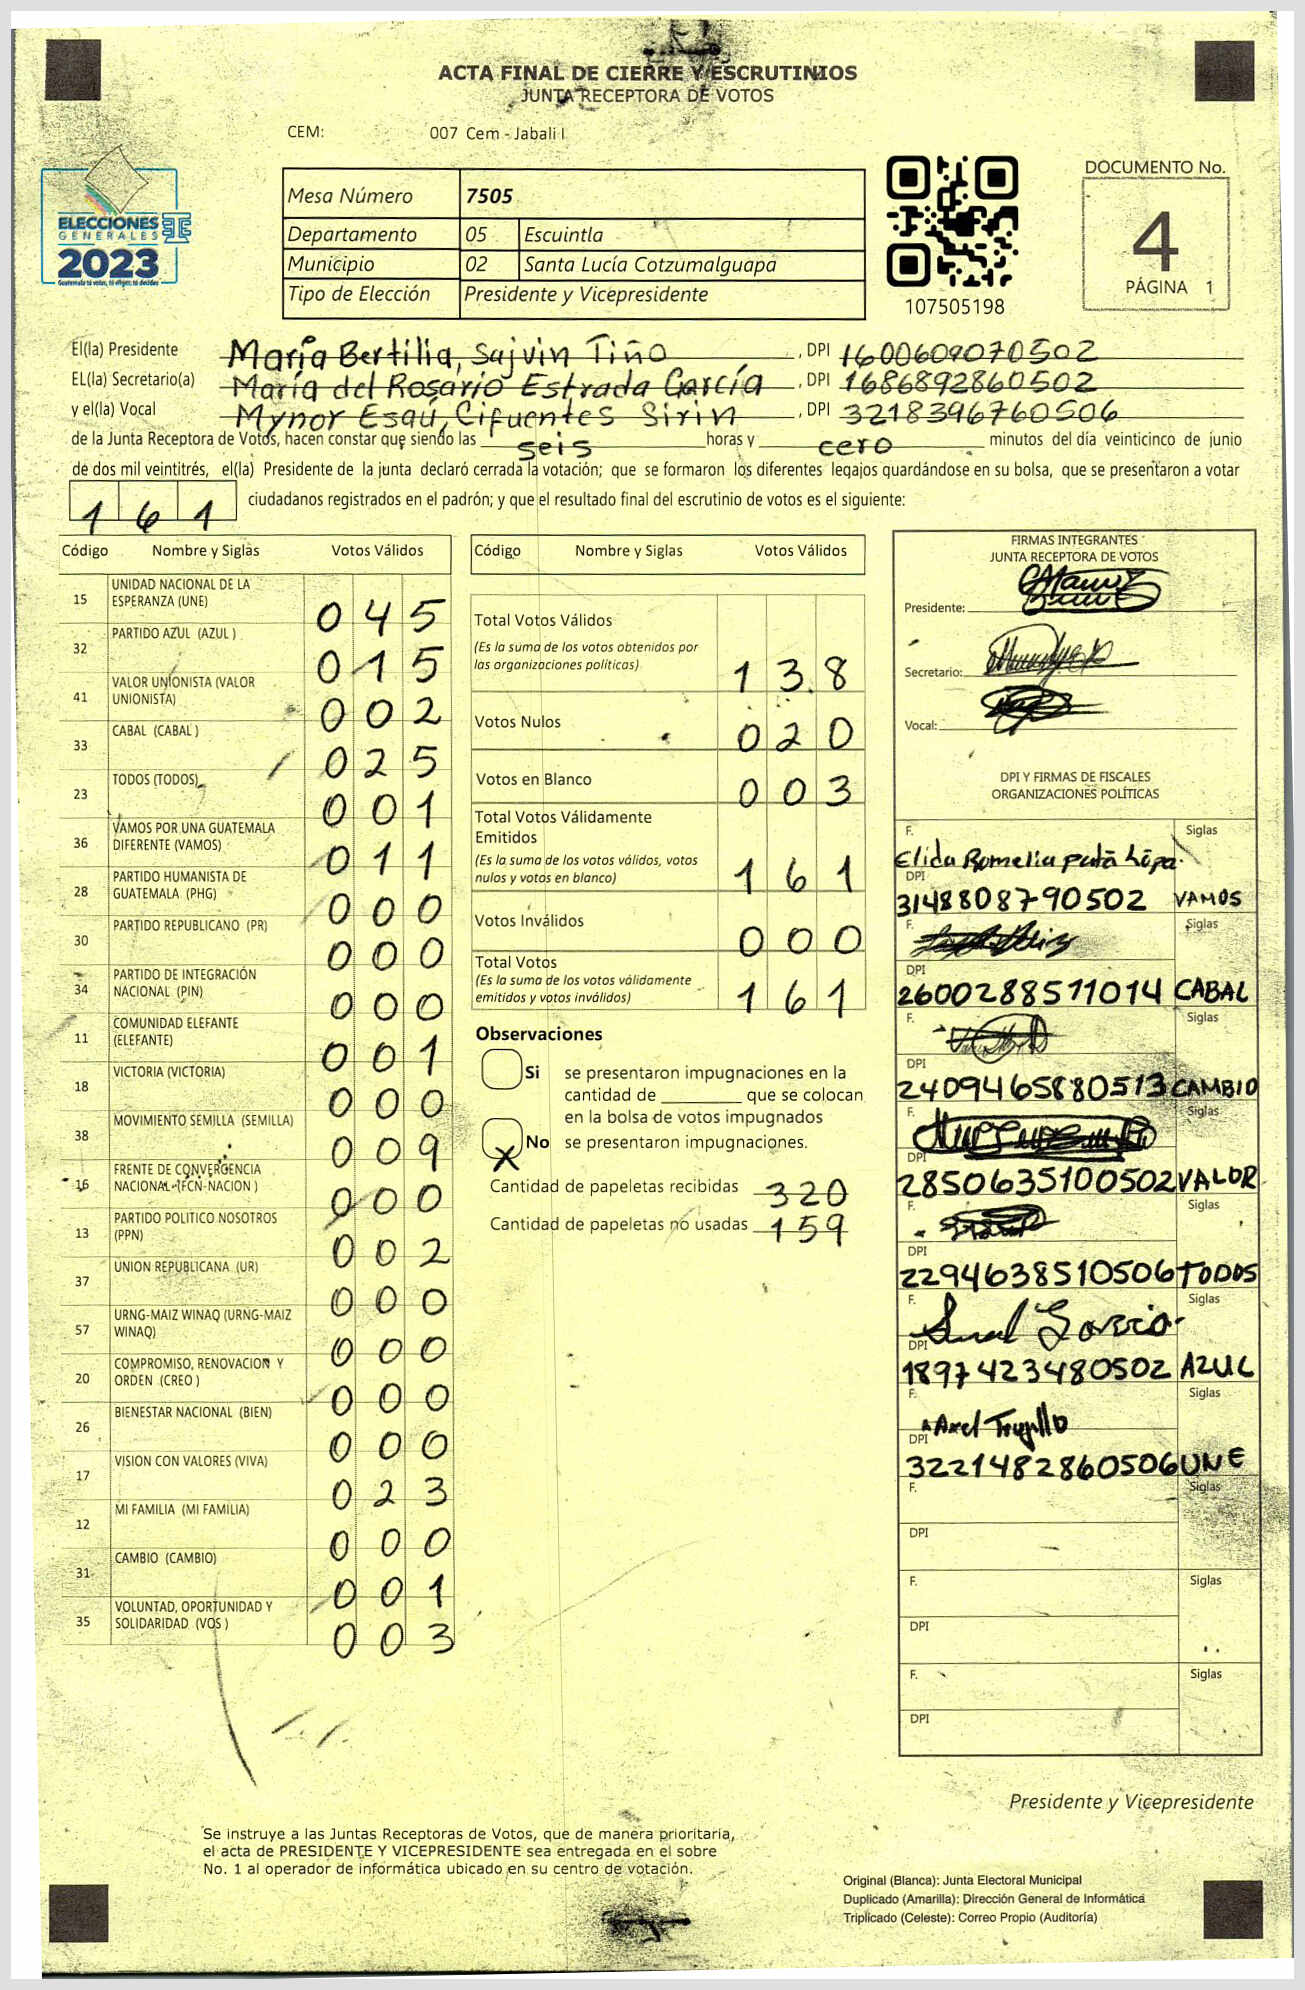 ACTA FINAL DE CIERRE Y ESCRUTINIOS
JUNTA RECEPTORA DE VOTOS
CEM: 007 Cem - Jabali I
ELECCIONES
GENERALES
2023
Guatemala tú votas, tú eliges, tú decides
Mesa Número 7505
Departamento 05 Escuintla
Municipio 02 Santa Lucía Cotzumalguapa
Tipo de Elección Presidente y Vicepresidente
107505198
DOCUMENTO No.
4
PÁGINA 1
El(la) Presidente María Bertilia, Sajvin Tiño, DPI 1600609070502
EL(la) Secretario(a) María del Rosario Estrada García, DPI 1686892860502
y el(la) Vocal Mynor Esaú, Cifuentes Sirin, DPI 3218396760506
de la Junta Receptora de Votos, hacen constar que siendo las seis horas y cero minutos del día veinticinco de junio
de dos mil veintitrés, el(la) Presidente de la junta declaró cerrada la votación; que se formaron los diferentes legajos quardándose en su bolsa, que se presentaron a votar
161 ciudadanos registrados en el padrón; y que el resultado final del escrutinio de votos es el siguiente:
Código Nombre y Siglas Votos Válidos
15 UNIDAD NACIONAL DE LA ESPERANZA (UNE) 045
32 PARTIDO AZUL (AZUL ) 015
41 VALOR UNIONISTA (VALOR UNIONISTA) 002
33 CABAL (CABAL ) 025
23 TODOS (TODOS) 001
36 VAMOS POR UNA GUATEMALA DIFERENTE (VAMOS) 011
28 PARTIDO HUMANISTA DE GUATEMALA (PHG) 000
30 PARTIDO REPUBLICANO (PR) 000
34 PARTIDO DE INTEGRACIÓN NACIONAL (PIN) 000
11 COMUNIDAD ELEFANTE (ELEFANTE) 001
18 VICTORIA (VICTORIA) 000
38 MOVIMIENTO SEMILLA (SEMILLA) 009
16 FRENTE DE CONVERGENCIA NACIONAL (FCN-NACION ) 000
13 PARTIDO POLITICO NOSOTROS (PPN) 002
37 UNION REPUBLICANA (UR) 000
57 URNG-MAIZ WINAQ (URNG-MAIZ WINAQ) 000
20 COMPROMISO, RENOVACION Y ORDEN (CREO ) 000
26 BIENESTAR NACIONAL (BIEN) 000
17 VISION CON VALORES (VIVA) 023
12 MI FAMILIA (MI FAMILIA) 000
31 CAMBIO (CAMBIO) 001
35 VOLUNTAD, OPORTUNIDAD Y SOLIDARIDAD (VOS ) 003
Código Nombre y Siglas Votos Válidos
Total Votos Válidos
(Es la suma de los votos obtenidos por
las organizaciones políticas) 138
Votos Nulos 020
Votos en Blanco 003
Total Votos Válidamente
Emitidos
(Es la suma de los votos válidos, votos
nulos y votos en blanco) 161
Votos Inválidos 000
Total Votos
(Es la suma de los votos válidamente
emitidos y votos inválidos) 161
Observaciones
Si se presentaron impugnaciones en la
cantidad de ________ que se colocan
en la bolsa de votos impugnados
X No se presentaron impugnaciones.
Cantidad de papeletas recibidas 320
Cantidad de papeletas no usadas 159
FIRMAS INTEGRANTES
JUNTA RECEPTORA DE VOTOS
Presidente:
Secretario:
Vocal:
DPI Y FIRMAS DE FISCALES
ORGANIZACIONES POLÍTICAS
F. Siglas
Elida Romelia
DPI
3148808790502 VAMOS
F. Siglas
DPI
2600288511014 CABAL
F. Siglas
DPI
2409465880513 CAMBIO
F. Siglas
DPI
2850635100502 VALOR
F. Siglas
DPI
2294638510506 TODOS
F. Siglas
DPI
1897423480502 AZUL
F. Siglas
Axel Trujillo
DPI
3221482860506 UNE
F. Siglas
DPI
F. Siglas
DPI
F. Siglas
DPI
Presidente y Vicepresidente
Se instruye a las Juntas Receptoras de Votos, que de manera prioritaria,
el acta de PRESIDENTE Y VICEPRESIDENTE sea entregada en el sobre
No. 1 al operador de informática ubicado en su centro de votación.
Original (Blanca): Junta Electoral Municipal
Duplicado (Amarilla): Dirección General de Informática
Triplicado (Celeste): Correo Propio (Auditoría)